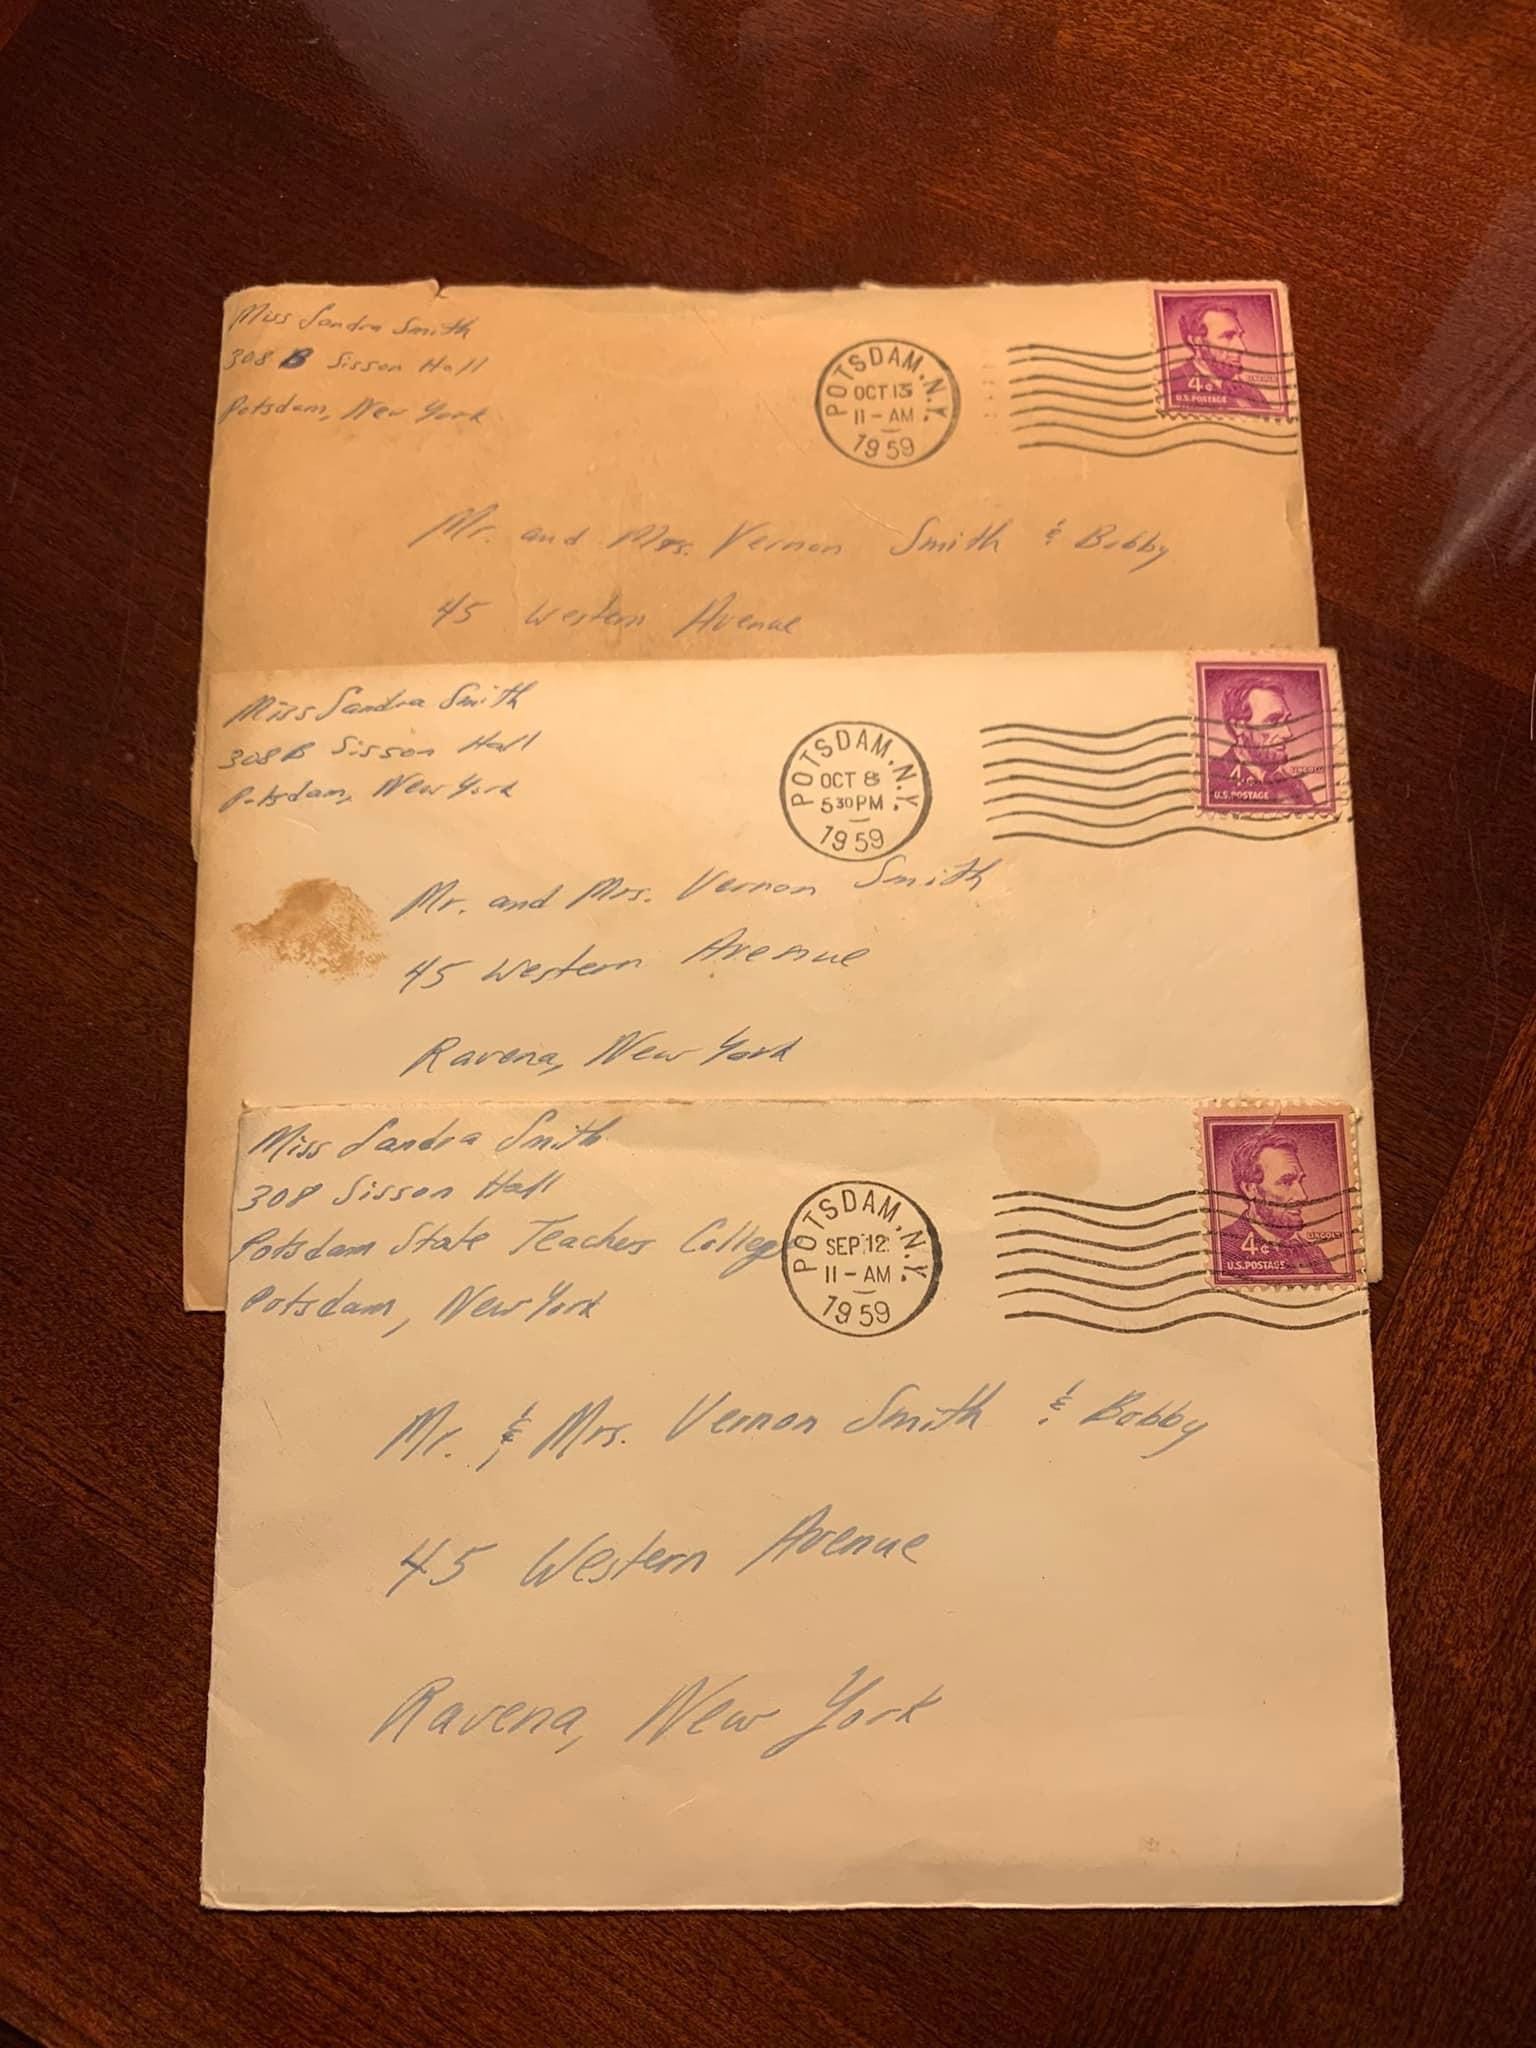 Miss Sandra Smith
308 B Sisson Hall
Potsdam, New York
POTSDAM, N.Y.
OCT 13
11 - AM
1959
LINCOLN
4¢
U.S. POSTAGE
Mr. and Mrs. Vernon Smith & Bobby
45 Western Avenue
Miss Sandra Smith
308 B Sisson Hall
Potsdam, New York
POTSDAM, N.Y.
OCT 8
5 30 PM
1959
LINCOLN
4¢
U.S. POSTAGE
Mr. and Mrs. Vernon Smith
45 Western Avenue
Ravena, New York
Miss Sandra Smith
308 Sisson Hall
Potsdam State Teachers College
Potsdam, New York
POTSDAM, N.Y.
SEP 12
11 - AM
1959
LINCOLN
4¢
U.S. POSTAGE
Mr. & Mrs. Vernon Smith & Bobby
45 Western Avenue
Ravena, New York